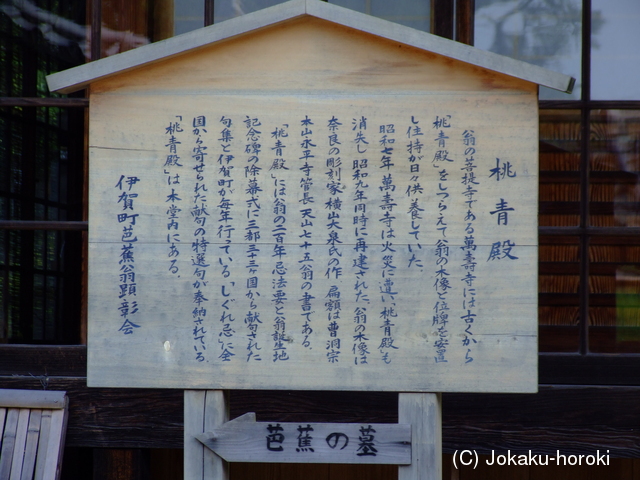 桃青殿
翁の菩提寺である萬寿寺には古くから
「桃青殿」をしつらえて翁の木像と位牌を安置
し住持が日々供養していた。
昭和七年 萬寿寺は火災に遭い、桃青殿も
消失し 昭和九年同時に再建された。翁の木像は
奈良の彫刻家 横山大泉氏の作 扁額は曹洞宗
本山永平寺管長 天山七十五翁の書である。
「桃青殿」には翁の二百年忌法要と翁誕生地
記念碑の除幕式に三都三十三ヶ国から献句された
句集と伊賀町が毎年行っている「しぐれ忌」に全
国から寄せられた献句の特選句が奉納されている
「桃青殿」は本堂内にある。
伊賀町芭蕉翁顕彰会
芭蕉の墓
(C) Jokaku-horoki